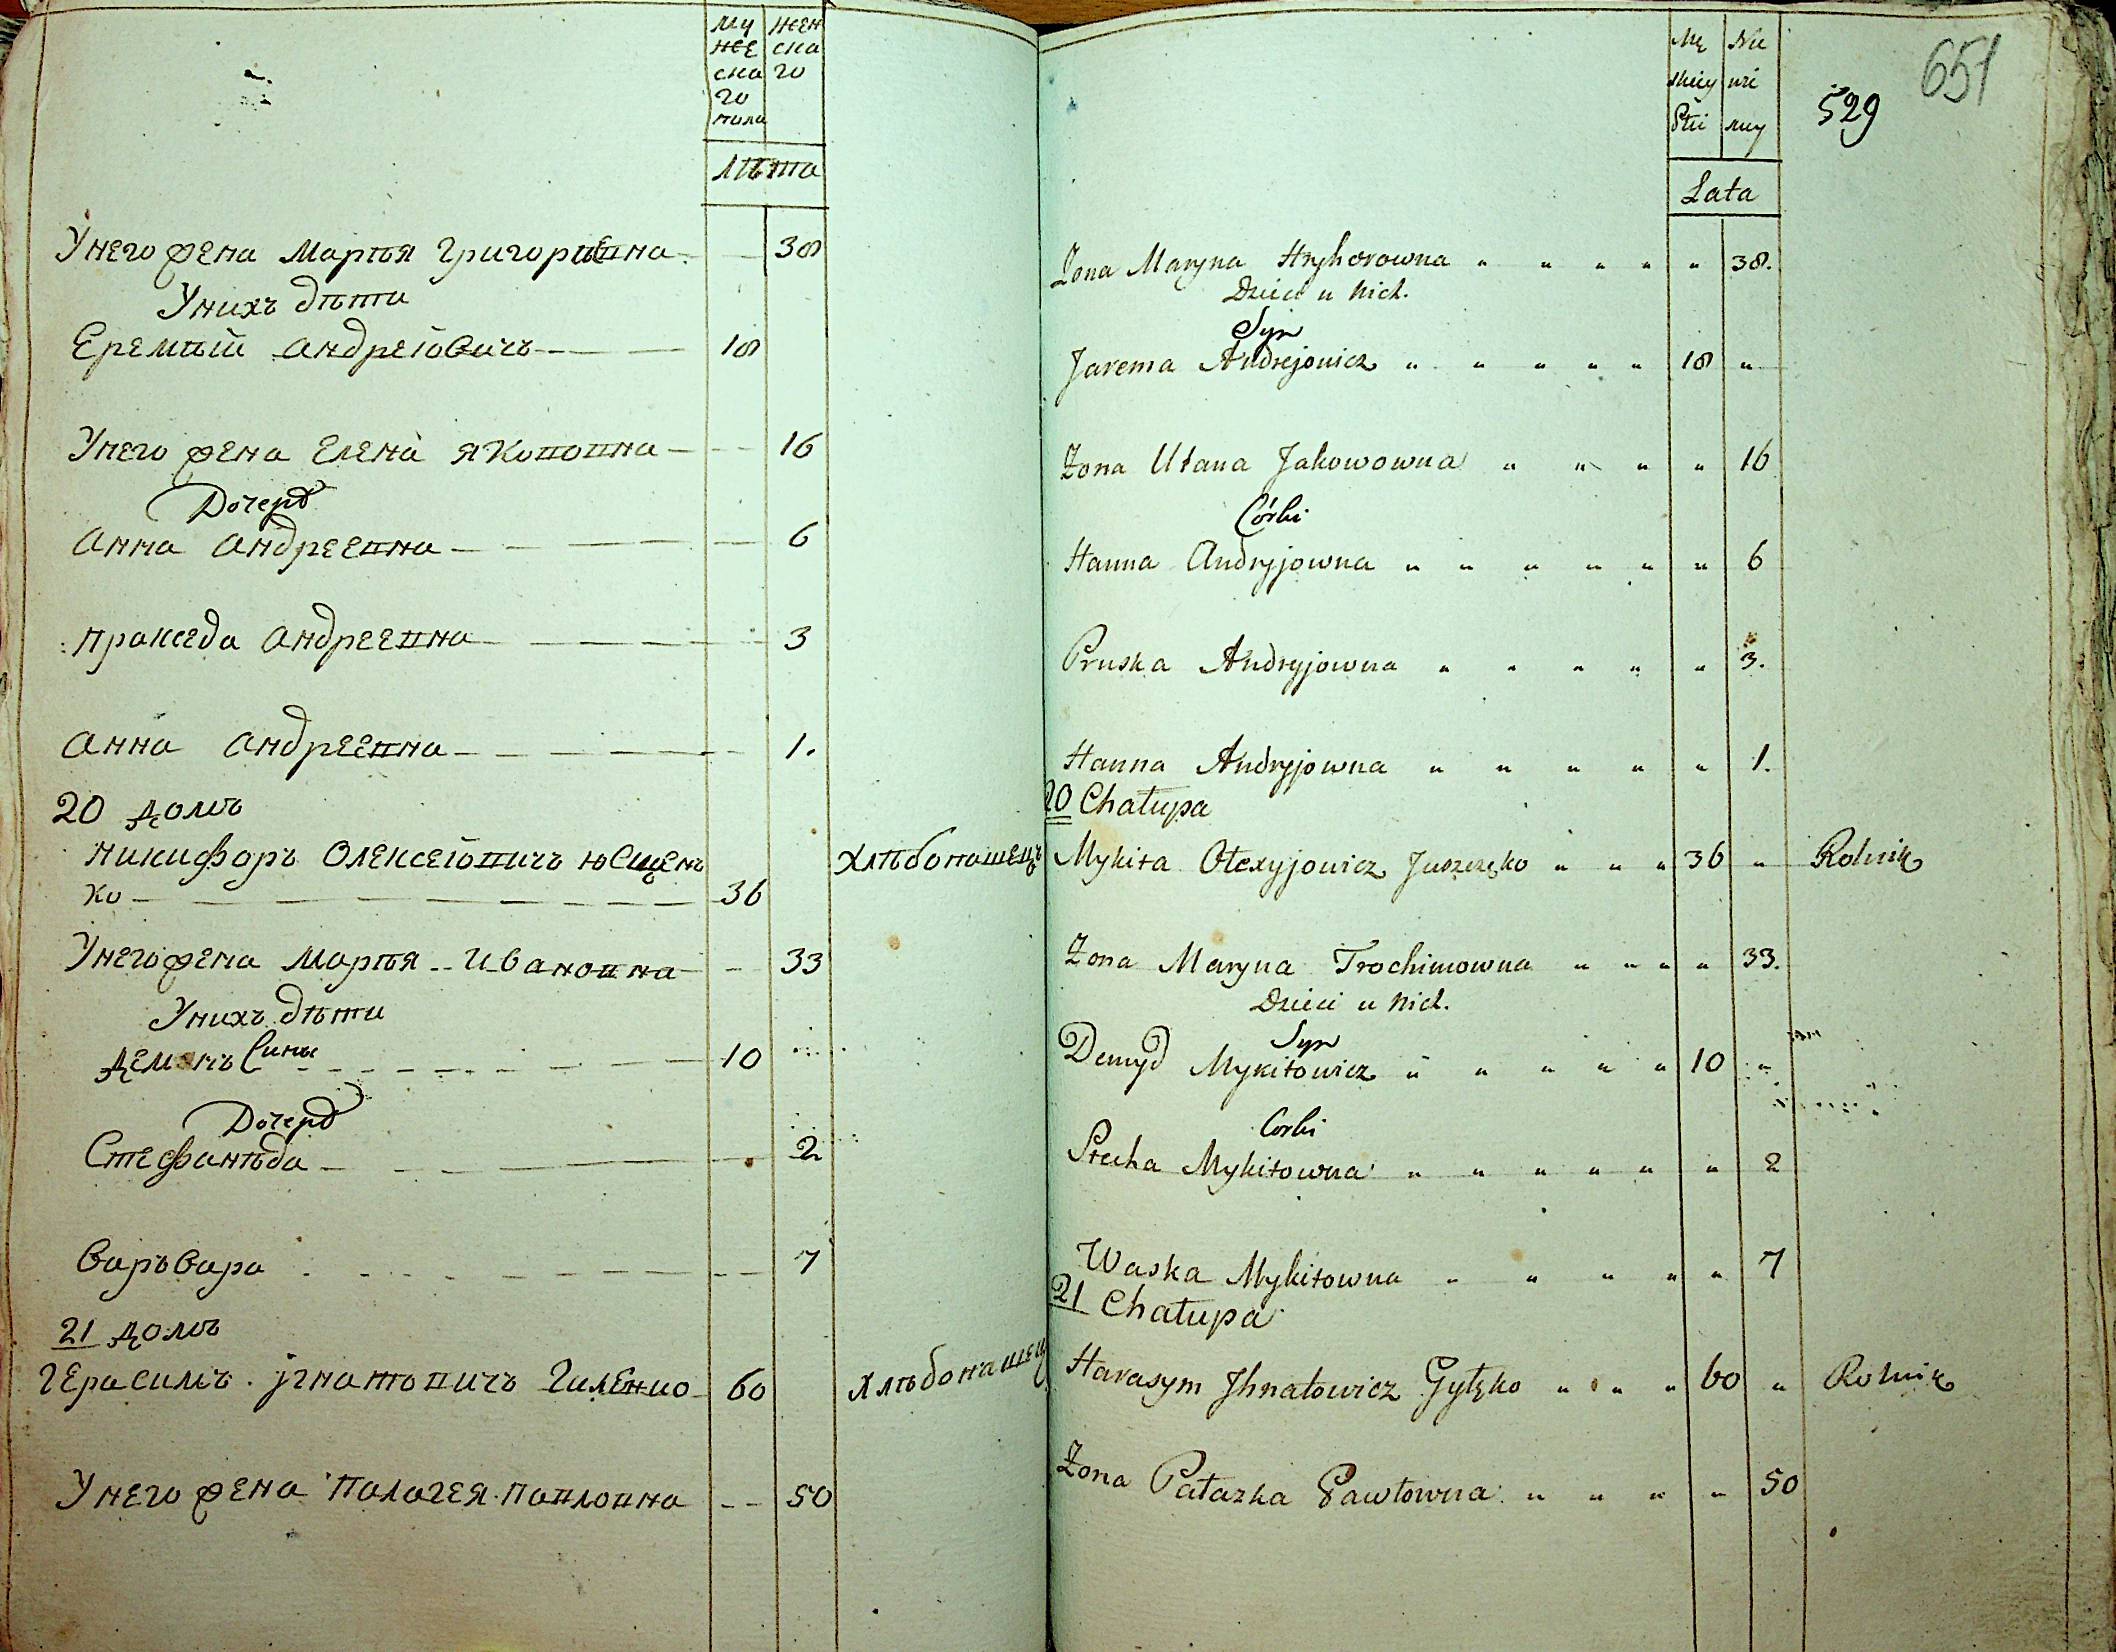 му жен
жЕ ска
ска го
го
пола
лѣта
Унего жена Марья Григорьевна 38
Унихъ дѣти
Еремѣй андреевичъ 18
Унего жена Елена Якововна 16
Дочерѣ
Анна Андреевна 6
пракседа Андреевна 3
Анна Андреевна 1.
20 домъ
Никифоръ Олексеевичъ Юсщен Хлѣбопашецъ
ко 36
Унего жена Марья Ивановна 33
Унихъ дѣти
Сины
демянъ 10
Дочерѣ
Стефанѣда 2
Варъвара 7
21 домъ
Герасимъ игнатовичъ Гиленко 60 Хлѣбопашец
Унего жена Палагея Павловна 50
651
529
Mę Nie
skiey wie
Płci scy
Lata
Żona Maryna Hryhorowna " " " " " 38.
Dzieci u nich.
Syn
Jarema Andrejowicz " " " " " 18 "
Żona Ulana Jakowowna " " " " 16
Córki
Hanna Andryjowna " " " " " " 6
Pruska Andryjowna " " " " " 3.
Hanna Andryjowna " " " " " 1.
20 Chałupa
Mykita Ołexyjowicz Juszczęko " " " 36 " Rolnik
Żona Maryna Trochimowna " " " " 33.
Dzieci u nich.
Syn
Demyd Mykitowicz " " " " " 10 "
Corki
Stecha Mykitowna " " " " " " 2
Waska Mykitowna " " " " " 7
21 Chałupa
Harasym Jhnatowicz Gylęko " " " 60 " Rolnik
Żona Pałazka Pawłowna " " " " 50